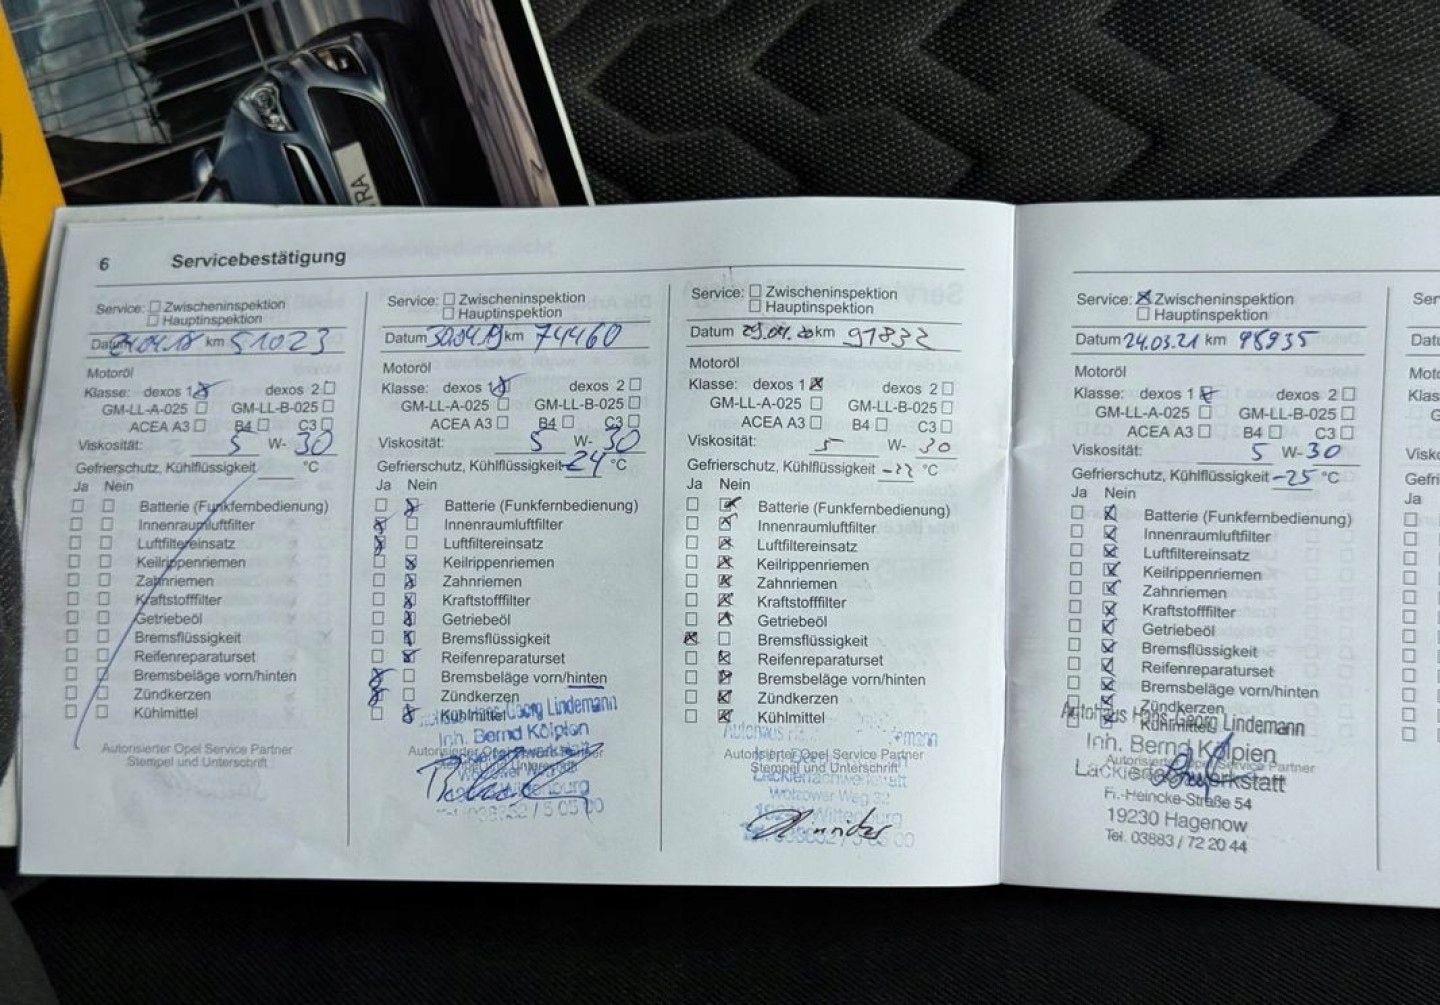 RA
6 Servicebestätigung
Service: Zwischeninspektion
Hauptinspektion
Datum 04.18 km 51023
Motoröl
Klasse: dexos 1 dexos 2
GM-LL-A-025 GM-LL-B-025
ACEA A3 B4 C3
Viskosität: 5 W- 30
Gefrierschutz, Kühlflüssigkeit °C
Ja Nein
Batterie (Funkfernbedienung)
Innenraumluftfilter
Luftfiltereinsatz
Keilrippenriemen
Zahnriemen
Kraftstofffilter
Getriebeöl
Bremsflüssigkeit
Reifenreparaturset
Bremsbeläge vorn/hinten
Zündkerzen
Kühlmittel
Autorisierter Opel Service Partner
Stempel und Unterschrift
Service: Zwischeninspektion
Hauptinspektion
Datum 30.04.19 km 74460
Motoröl
Klasse: dexos 1 dexos 2
GM-LL-A-025 GM-LL-B-025
ACEA A3 B4 C3
Viskosität: 5 W- 30
Gefrierschutz, Kühlflüssigkeit -24 °C
Ja Nein
Batterie (Funkfernbedienung)
Innenraumluftfilter
Luftfiltereinsatz
Keilrippenriemen
Zahnriemen
Kraftstofffilter
Getriebeöl
Bremsflüssigkeit
Reifenreparaturset
Bremsbeläge vorn/hinten
Zündkerzen
Kühlmittel
Georg Lindemann
Inh. Bernd Kölpien
Autorisierter Opel Service Partner
Stempel und Unterschrift
Service: Zwischeninspektion
Hauptinspektion
Datum 29.04.20 km 91832
Motoröl
Klasse: dexos 1 dexos 2
GM-LL-A-025 GM-LL-B-025
ACEA A3 B4 C3
Viskosität: 5 W- 30
Gefrierschutz, Kühlflüssigkeit -22 °C
Ja Nein
Batterie (Funkfernbedienung)
Innenraumluftfilter
Luftfiltereinsatz
Keilrippenriemen
Zahnriemen
Kraftstofffilter
Getriebeöl
Bremsflüssigkeit
Reifenreparaturset
Bremsbeläge vorn/hinten
Zündkerzen
Kühlmittel
Autohaus
Autorisierter Opel Service Partner
Stempel und Unterschrift
Wölzower Weg 32
19243 Wittenburg
Service: Zwischeninspektion
Hauptinspektion
Datum 24.03.21 km 98935
Motoröl
Klasse: dexos 1 dexos 2
GM-LL-A-025 GM-LL-B-025
ACEA A3 B4 C3
Viskosität: 5 W-30
Gefrierschutz, Kühlflüssigkeit -25 °C
Ja Nein
Batterie (Funkfernbedienung)
Innenraumluftfilter
Luftfiltereinsatz
Keilrippenriemen
Zahnriemen
Kraftstofffilter
Getriebeöl
Bremsflüssigkeit
Reifenreparaturset
Bremsbeläge vorn/hinten
Zündkerzen
Kühlmittel
Autohaus Hans-Georg Lindemann
Inh. Bernd Kölpien
Autorisierter Opel Service Partner
Fr.-Heincke-Straße 54
19230 Hagenow
Tel. 03883 / 72 20 44
Ser
Datu
Moto
Klas
G
Visk
Gefri
Ja